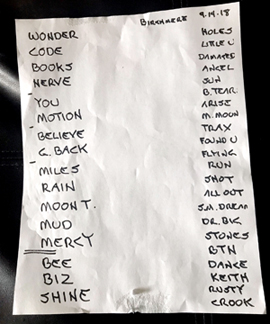 BIRCHMERE 9.14.18
WONDER
CODE
BOOKS
NERVE
YOU
MOTION
BELIEVE
G. BACK
MILES
RAIN
MOON T.
MUD
MERCY
BEE
BIZ
SHINE
HOLES
LITTLE U
DAMAGED
ANGEL
SUN
B. TEAR
ARISE
M. MOON
TRAX
FOUND U
FLYING
RUN
SHOT
ALL OUT
S.M. DREAM
DR. BIG
STONES
BTN
DANCE
KEITH
RUSTY
CROOK